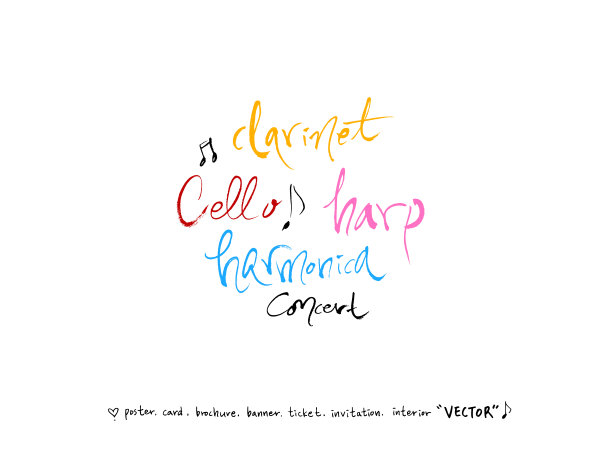 clarinet
Cello harp
harmonica
Concert
poster. card. brochure. banner. ticket. invitation. interior "VECTOR"